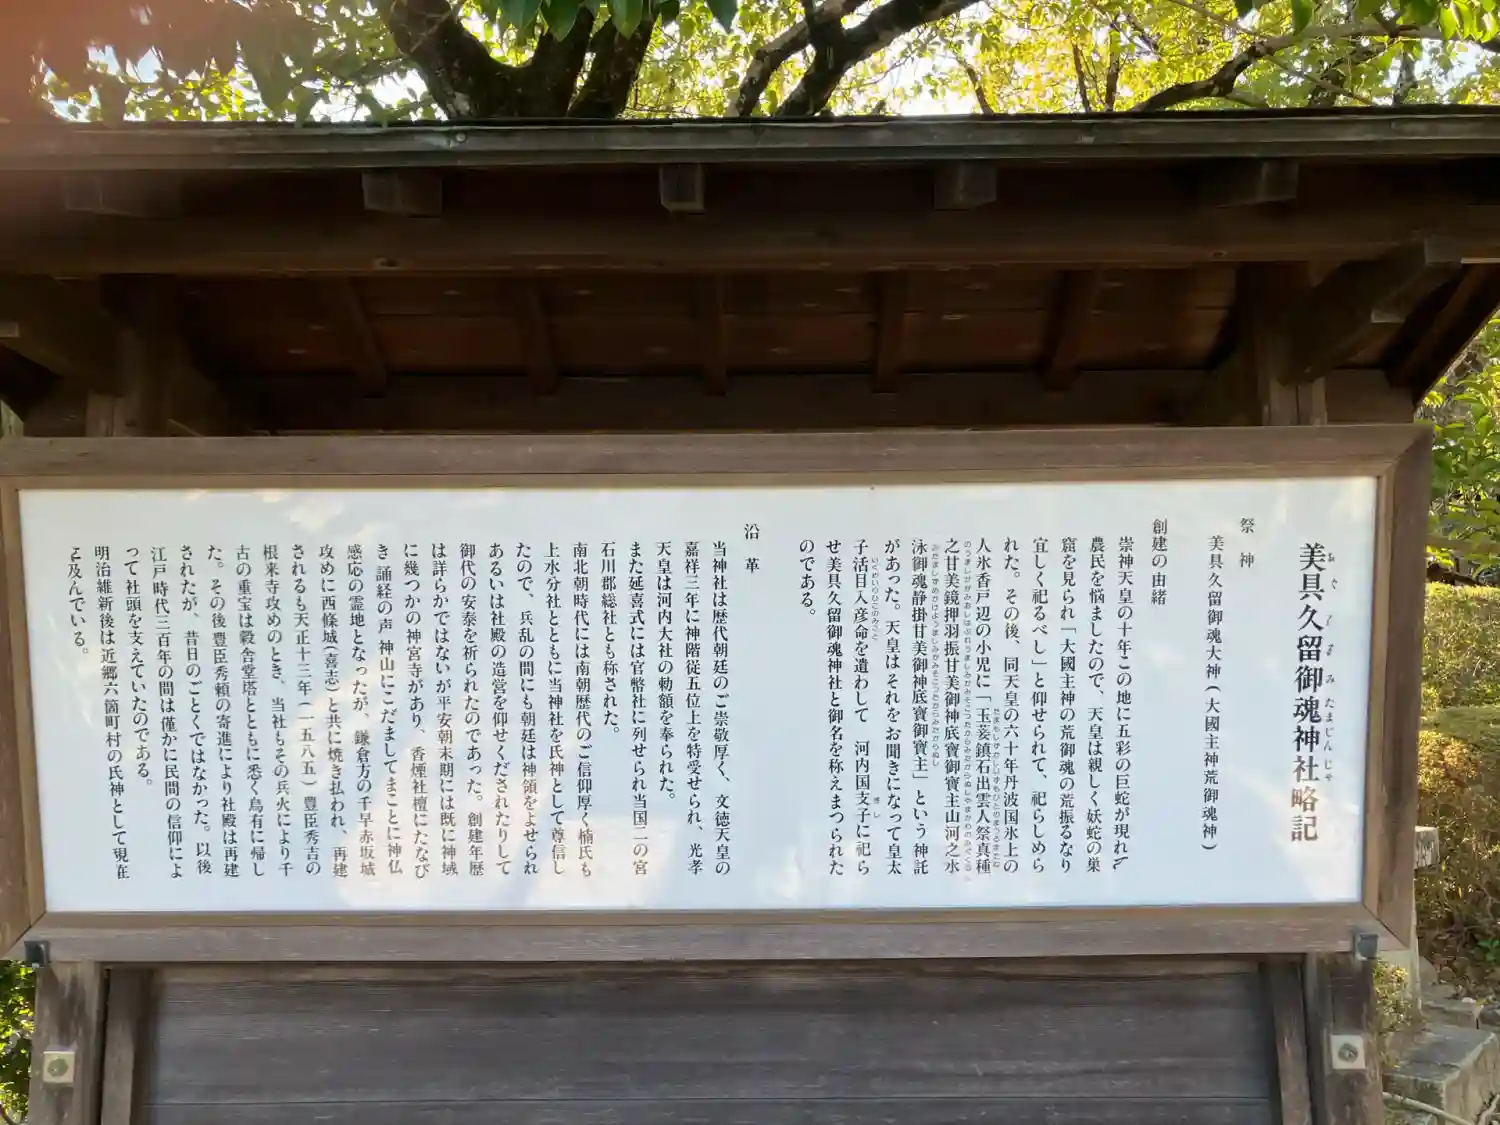 美具久留御魂神社略記
祭神
美具久留御魂大神(大國主神荒御魂神)
創建の由緒
崇神天皇の十年この地に五彩の巨蛇が現れ
農民を悩ましたので、天皇は親しく妖蛇の巣
窟を見られ「大國主神の荒御魂の荒振るなり
宜しく祀るべし」と仰せられて、祀らしめら
れた。その後、同天皇の六十年丹波国氷上の
人氷香戸辺の小児に「玉菨鎮石出雲人祭真種
之甘美鏡押羽振甘美御神底寶御寶主山河之水
泳御魂静掛甘美御神底寶御寶主」という神託
があった。天皇はそれをお聞きになって皇太
子活目入彦命を遣わして 河内国支子に祀ら
せ美具久留御魂神社と御名を称えまつられた
のである。
沿革
当神社は歴代朝廷のご崇敬厚く、文徳天皇の
嘉祥三年に神階従五位上を特受せられ、光孝
天皇は河内大社の勅額を奉られた。
また延喜式には官幣社に列せられ当国二の宮
石川郡総社とも称された。
南北朝時代には南朝歴代のご信仰厚く楠氏も
上水分社とともに当神社を氏神として尊信し
たので、兵乱の間にも朝廷は神領をよせられ
あるいは社殿の造営を仰せくだされたりして
御代の安泰を祈られたのであった。創建年歴
は詳らかではないが平安朝末期には既に神域
に幾つかの神宮寺があり、香煙社檀にたなび
き 誦経の声 神山にこだましてまことに神仏
感応の霊地となったが、鎌倉方の千早赤坂城
攻めに西條城(喜志)と共に焼き払われ、再建
されるも天正十三年(一五八五)豊臣秀吉の
根来寺攻めのとき、当社もその兵火により千
古の重宝は穀舎堂塔とともに悉く烏有に帰し
た。その後豊臣秀頼の寄進により社殿は再建
されたが、昔日のごとくではなかった。以後
江戸時代三百年の間は僅かに民間の信仰によ
って社頭を支えていたのである。
明治維新後は近郷六箇町村の氏神として現在
に及んでいる。